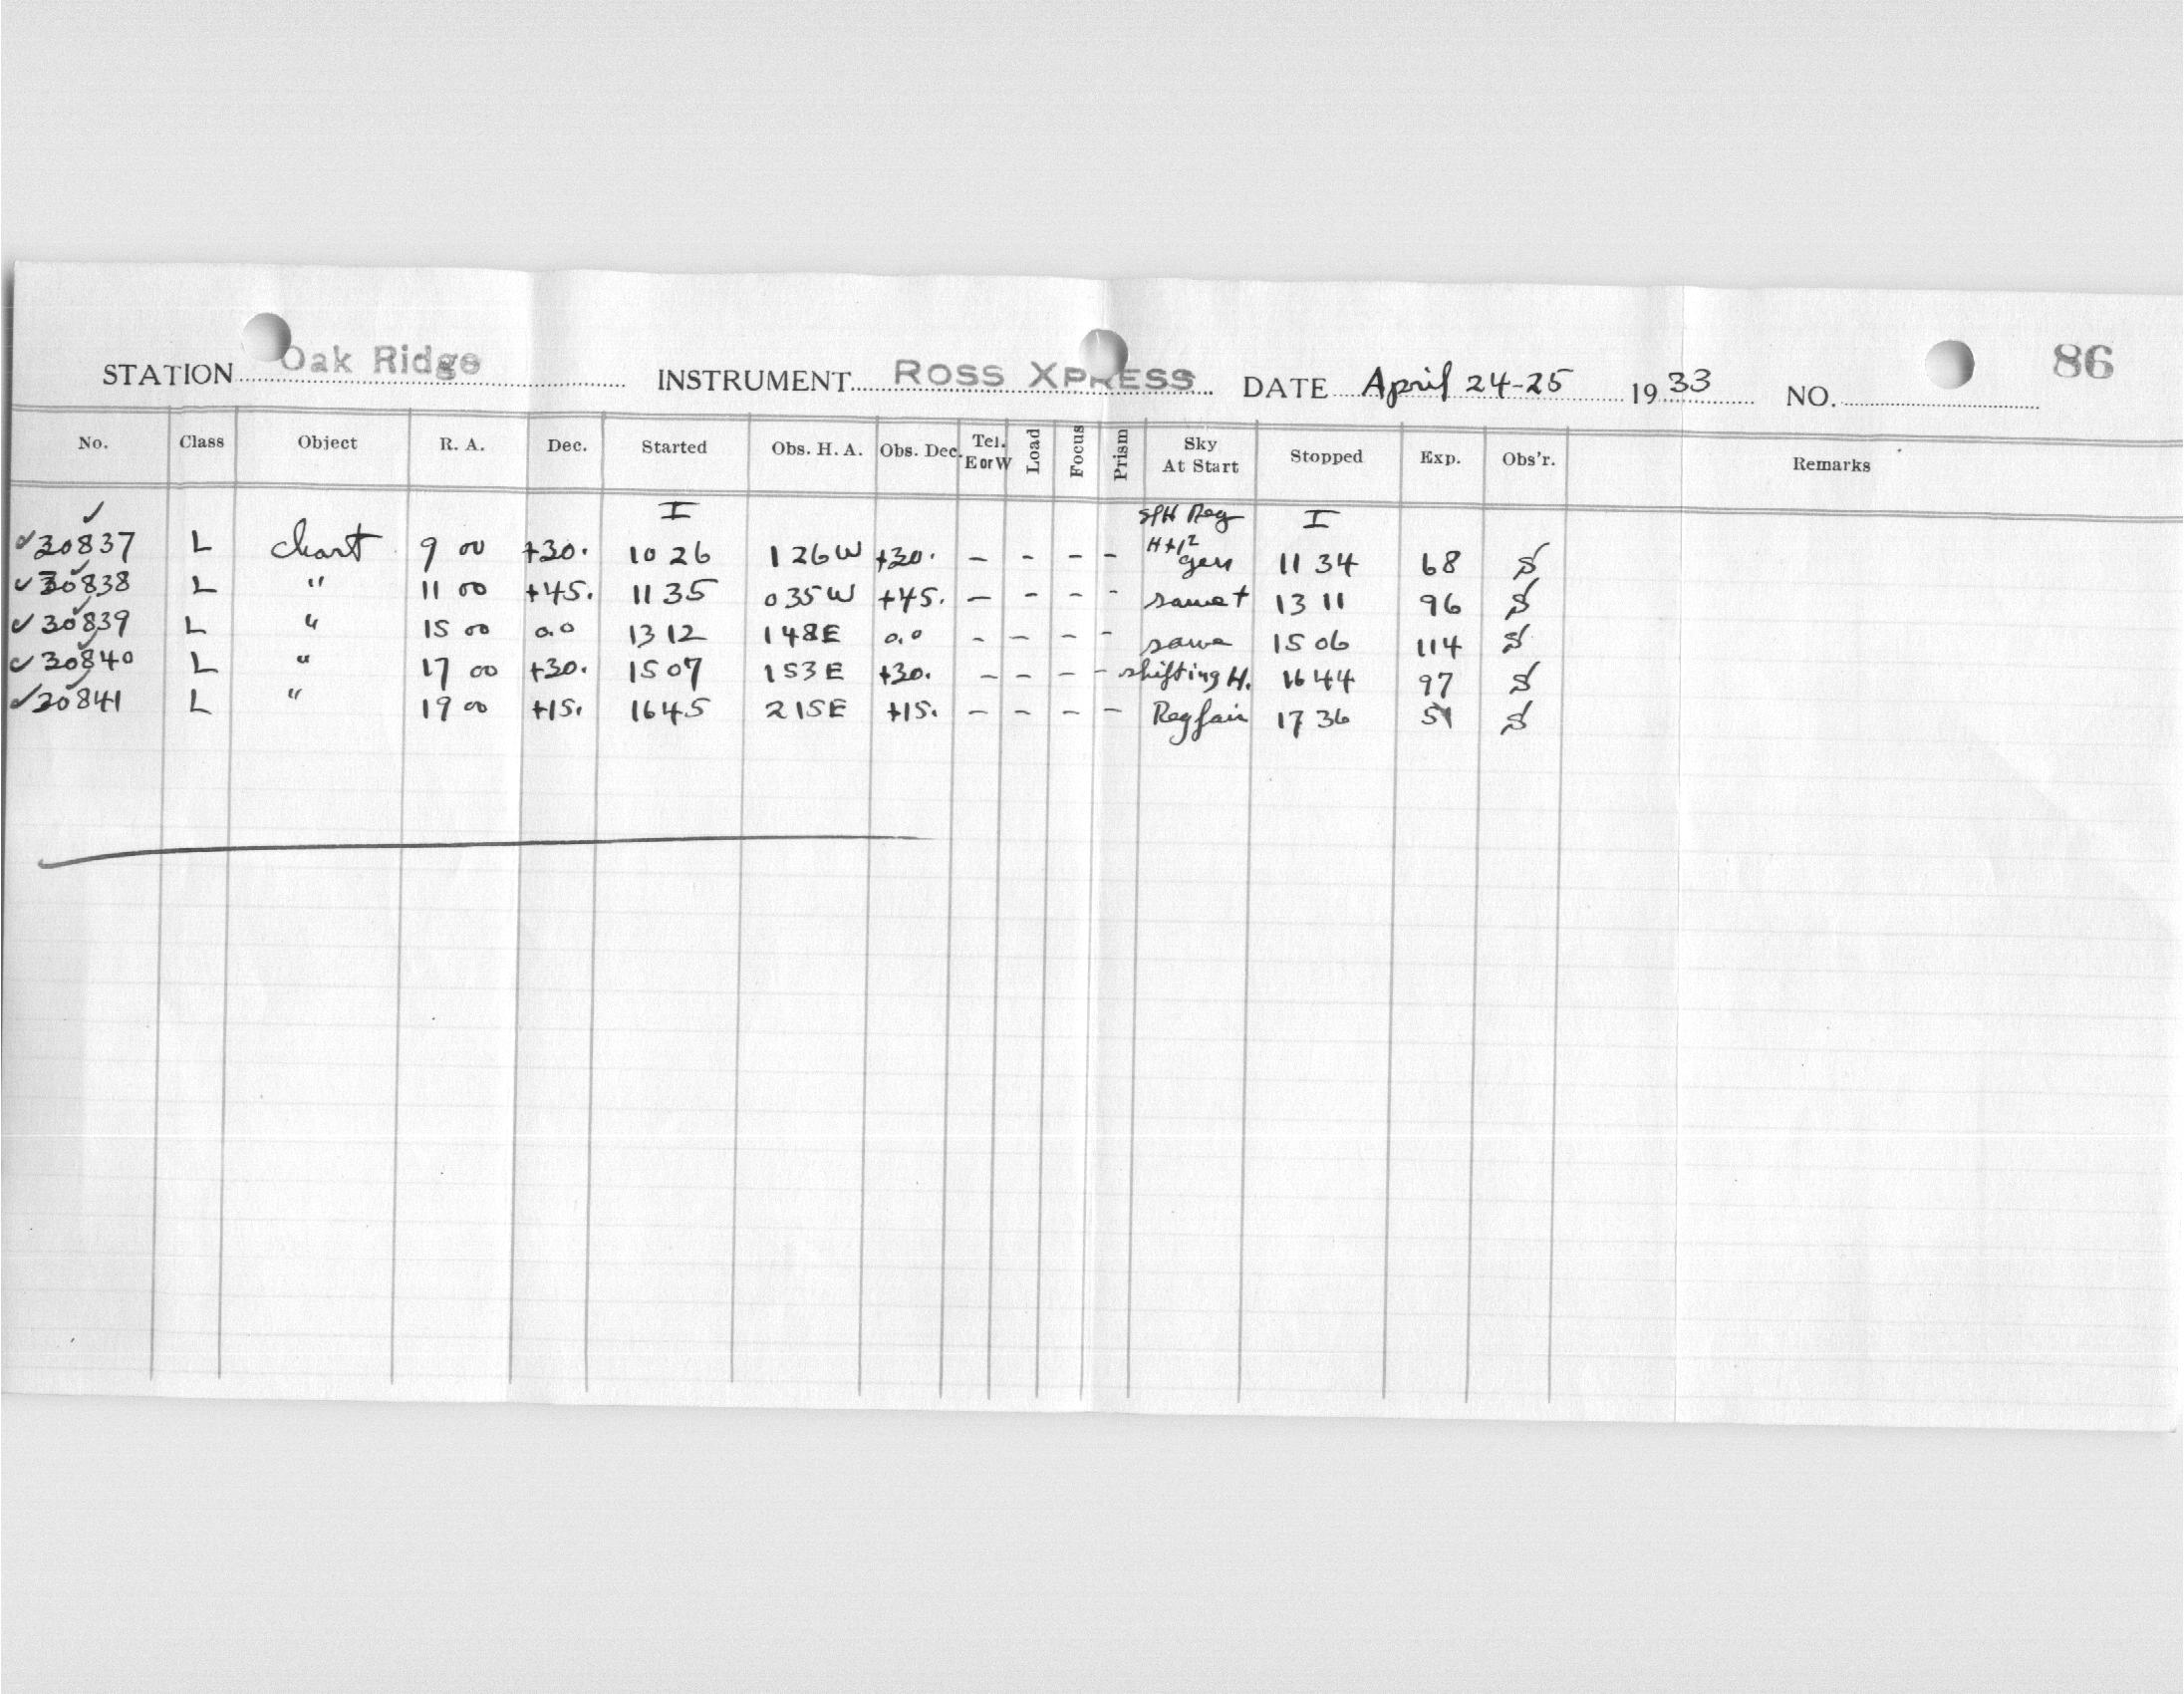 STATION Oak Ridge INSTRUMENT ROSS XPRESS DATE April 24-25 1933 NO. 86
No. Class Object R. A. Dec. Started Obs. H. A. Obs. Dec. Tel. E or W Load Focus Prism Sky At Start Stopped Exp. Obs'r. Remarks
I Reg I
✓30837 L chart 9 00 +30. 10 26 1 26 W +30. - - - - 11 34 68 S
✓30838 L " 11 00 +45. 11 35 0 35 W +45. - - - - same + 13 11 96 S
✓30839 L " 15 00 0.0 13 12 1 48 E 0.0 - - - - same 15 06 114 S
✓30840 L " 17 00 +30. 15 07 1 53 E +30. - - - - shifting H. 16 44 97 S
✓30841 L " 19 00 +15. 16 45 2 15 E +15. - - - - Reg fair 17 36 51 S